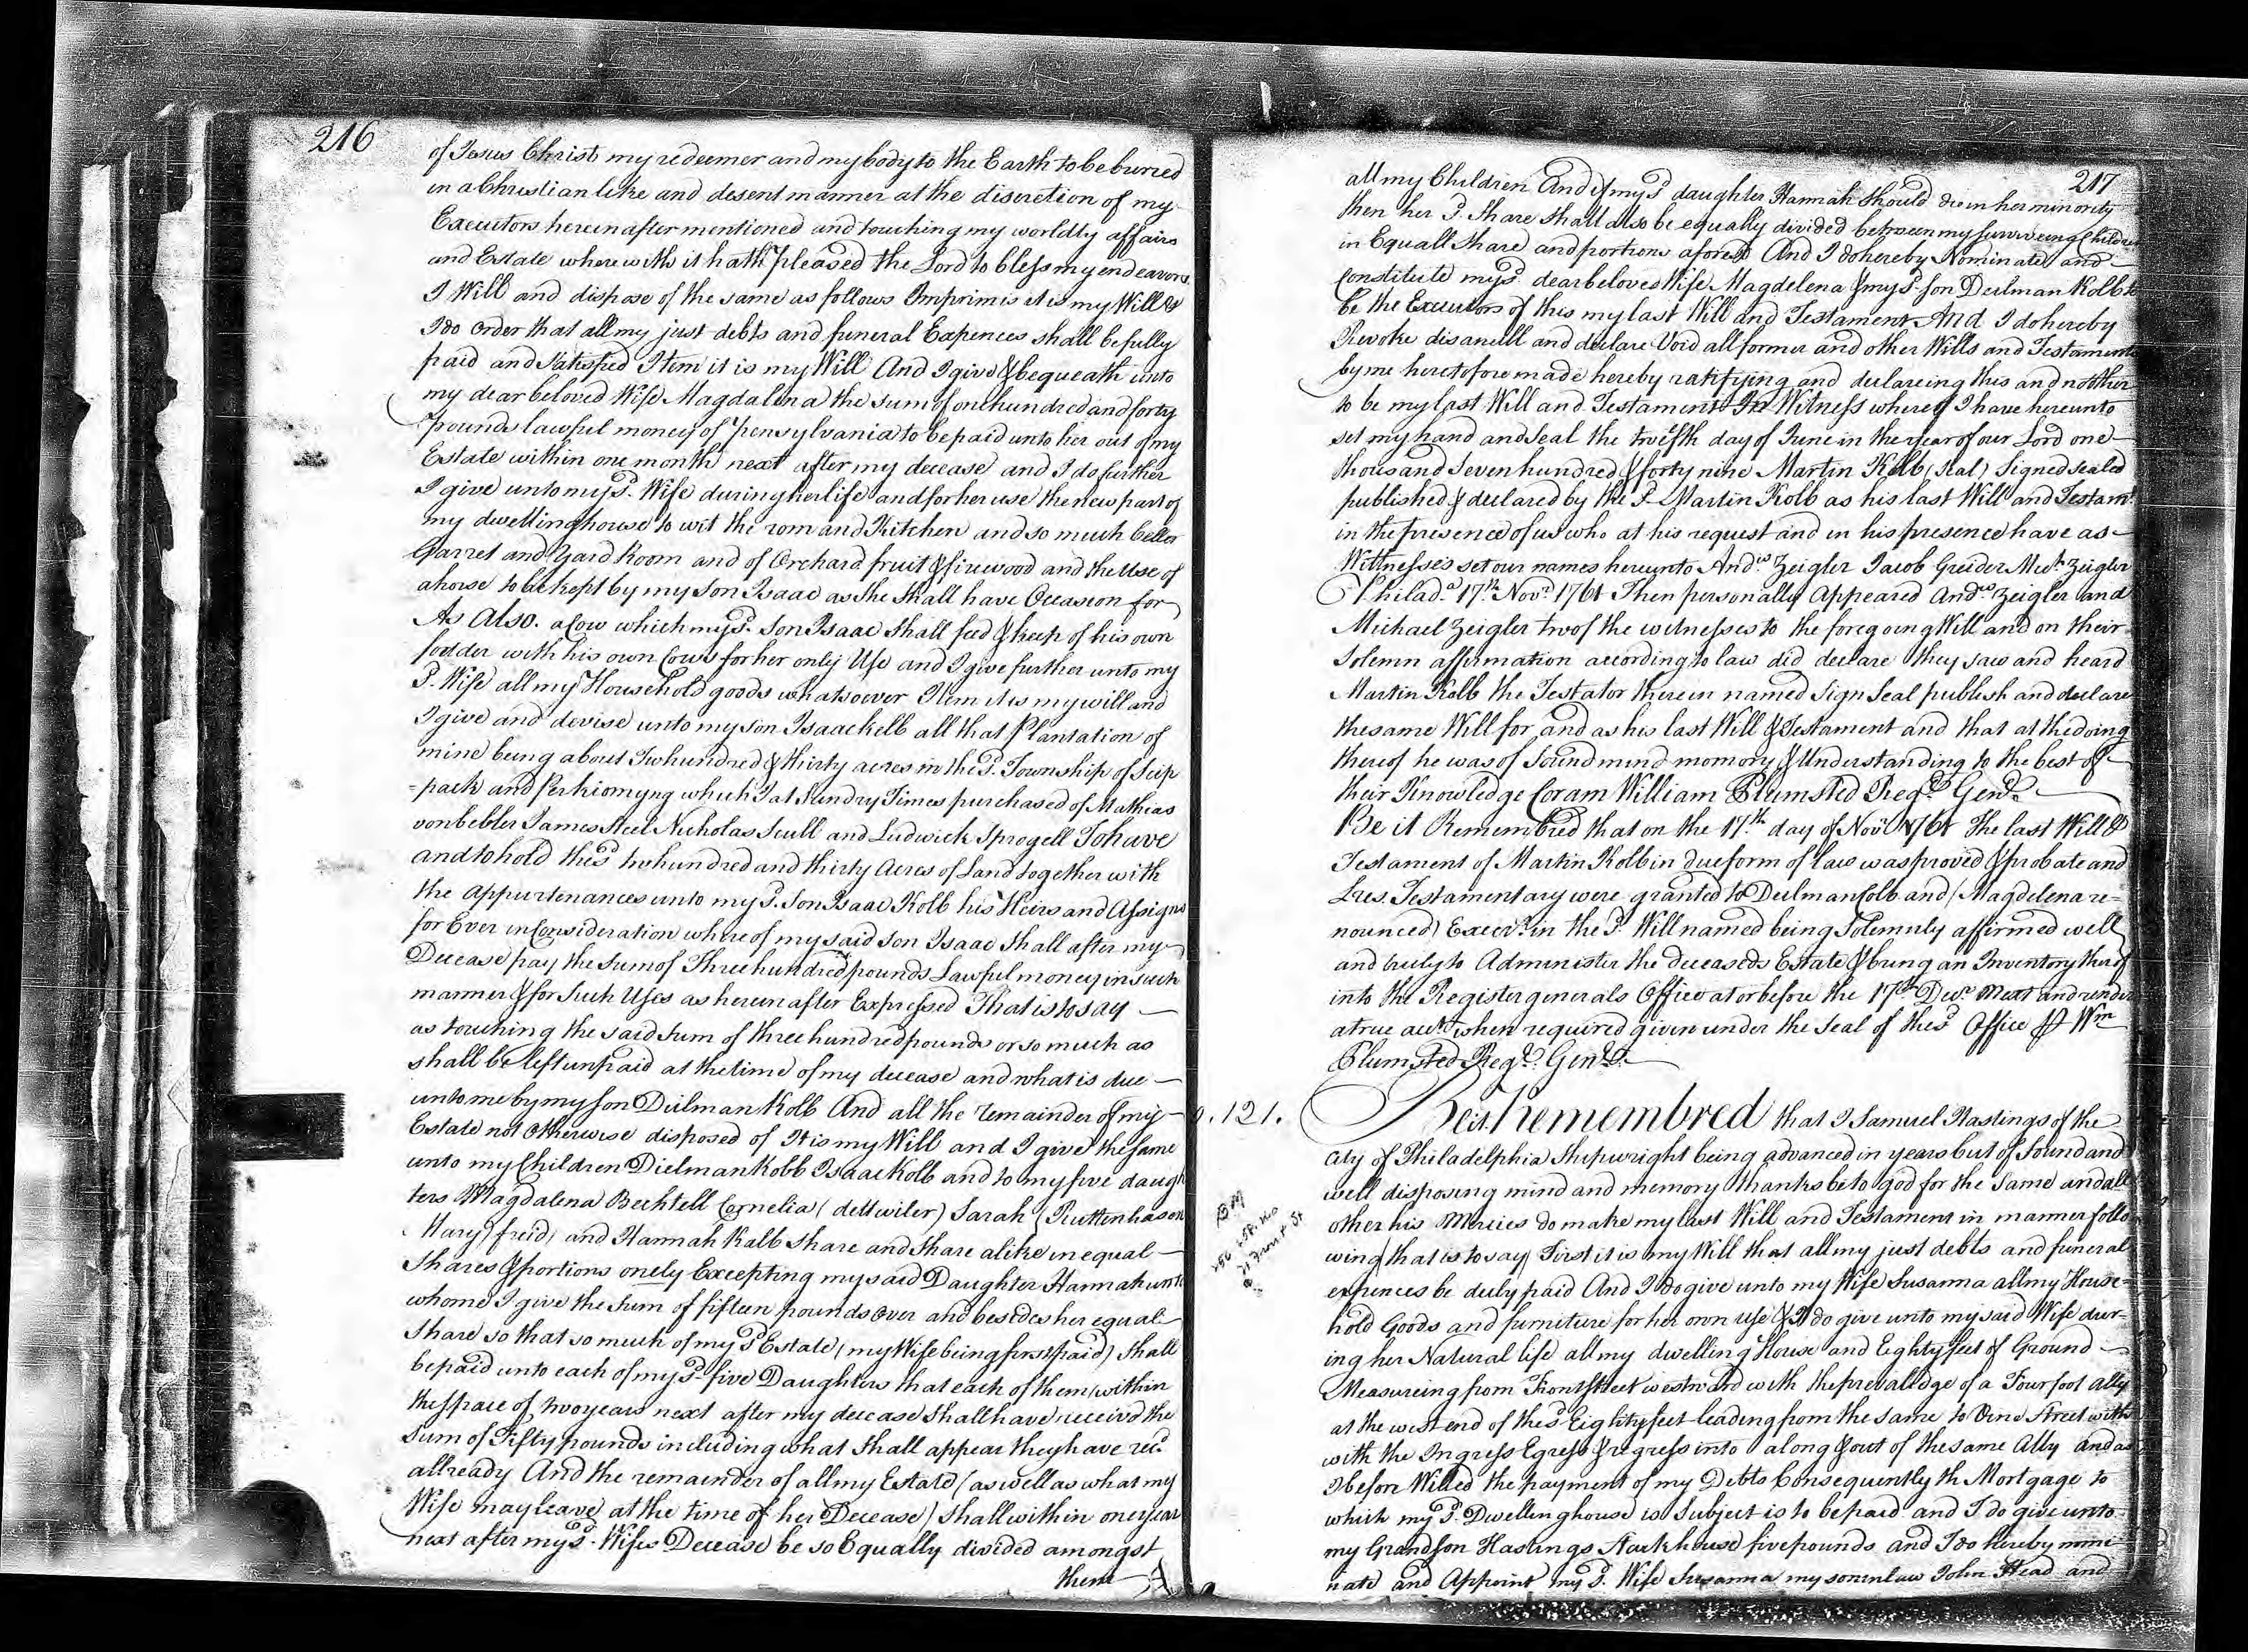 216
of Jesus Christ my redeemer and my body to the Earth to be buried
in a Christian like and desent manner at the discretion of my
Executors herein after mentioned and touching my worldly affairs
and Estate where with it hath pleased the Lord to bless my endeavors
I Will and dispose of the same as follows Imprimis it is my Will &
I do order that all my just debts and funeral Expences shall be fully
paid and Satisfied Item it is my Will And I give & bequeath unto
my dear beloved Wife Magdalena the sum of one hundred and forty
pounds lawful money of Pensylvania to be paid unto her out of my
Estate within one month next after my decease and I do further
I give unto my sd. Wife during her life and for her use the new part of
my dwelling house to wit the rom and Kitchen and so much Celler
Garret and Yard Room and of Orchard fruit & firewood and the Use of
a horse to be kept by my son Isaac as she shall have Occasion for
As Also. a Cow which my sd. son Isaac shall feed & keep of his own
fodder with his own Cows for her only Use and I give further unto my
sd. Wife all my Household goods whatsoever Item it is my will and
I give and devise unto my son Isaac kolb all that Plantation of
mine being about Two hundred & thirty acres in the sd. Township of Scip
=pack and Perkiomyng which I at Sundry Times purchased of Mathias
vonbebber James Steel Nicholas Scull and Ludwick Sprogell To have
and to hold the sd two hundred and thirty Acres of Land together with
the appurtenances unto my sd. Son Isaac Kolb his Heirs and Assigns
for Ever in Consideration whereof my said son Isaac shall after my
Decease pay the Sum of Three hundred pounds Lawful money in such
manner & for such Uses as herein after Expressed That is to say
as touching the said sum of three hundred pounds or so much as
shall be left unpaid at the time of my decease and what is due
unto me by my son Dielman Kolb And all the remainder of my
Estate not otherwise disposed of It is my Will and I give the same
unto my Children Dielman Kolb Isaac Kolb and to my five daugh
ters Magdalena Bechtell Cornelia (dettwiler) Sarah (Ruttenhason
Mary) freid) and Hannah Kalb share and share alike in equal
Shares & portions onely Excepting my said Daughter Hannah unto
whome I give the Sum of fifteen pounds over and besides her equal
Share so that so much of my sd Estate (my Wife being first paid) shall
be paid unto each of my sd. five Daughters that each of them within
the space of two years next after my decease shall have receivd the
sum of Fifty pounds including what shall appear they have recd.
allready And the remainder of all my Estate (as well as what my
Wife may leave at the time of her Decease) shall within one year
next after my sd. Wifes Decease be so Equally divided amongst
them
217
all my Children And if my sd daughter Hannah should die in her minority
then her sd. Share shall also be equally divided between my surviveing Children
in Equall Share and portions aforesd And I do hereby Nominate and
Constitute my sd. dear beloved Wife Magdelena & my sd. son Deilman Kolb to
be the Executors of this my last Will and Testament And I do hereby
Revoke disanelll and declare Void all former and other Wills and Testaments
by me heretofore made hereby ratifying and declareing this and no other
to be my last Will and Testament In Witness whereof I have hereunto
set my hand and Seal the twelfth day of June in the year of our Lord one
thousand Seven hundred & forty nine Martin Kolb (Seal) Signed sealed
published & declared by the sd. Martin Kolb as his last Will and Testamt.
in the presence of us who at his request and in his presence have as
Wittnesses set our names hereunto Andws Zeigler Jacob Greider Michl. Zeigler
Philada. 17th. Novr. 1761 Then personally Appeared Andws. Zeigler and
Michael Zeigler two of the witnesses to the foregoing Will and on their
Solemn affirmation according to law did declare they saw and heard
Martin Kolb the Testator therein named Sign Seal publish and declare
the same Will for and as his last Will & Testament and that at the doing
thereof he was of Sound mind momory & Understanding to the best of
their Knowledge Coram William Plumsted Regr. Genl.
Be it Remembred that on the 17th. day of Novr. 1761 The last Will &
Testament of Martin Kolb in due form of law was proved & probate and
Lres. Testamentary were granted to Deilman Colb and (Magdelena re=
nounced) Execrs. in the sd. Will named being Solemnly affirmed well
and truly to Administer the deceaseds Estate & bring an Inventory thereof
into the Register generals Office at or before the 17th Decr. Next and render
a true acct. when required given under the Seal of the sd Office ⅌ Wm
Plumsted Regr. Genl.
o. 121.
Be it Remembred that I Samuel Hastings of the
City of Philadelphia Shipwright being advanced in years but of Sound and
well disposing mind and memory thanks be to god for the Same and all
other his Mercies do make my last Will and Testament in manner follo
wing (that is to say) First it is my Will that all my just debts and funeral
expences be duly paid And I do give unto my Wife Susanna all my House=
hold Goods and furniture for her own use & I do give unto my said Wife dur-
ing her Natural life all my dwelling House and Eighty feet of Ground
Measureing from Front Street westward with the previledge of a Four foot ally
at the west end of the sd Eighty feet leading from the same to Vine Street with
with the Ingress Egress & regress into along & out of the same Ally and as
I before Willed the payment of my Debts Consequently th Mortgage to
which my sd. Dwelling house is Subject is to be paid and I do give unto
my Grandson Hastings Stackhouse five pounds and I do hereby nomi
nate and Appoint my sd. Wife Susanna my son in law John Head and